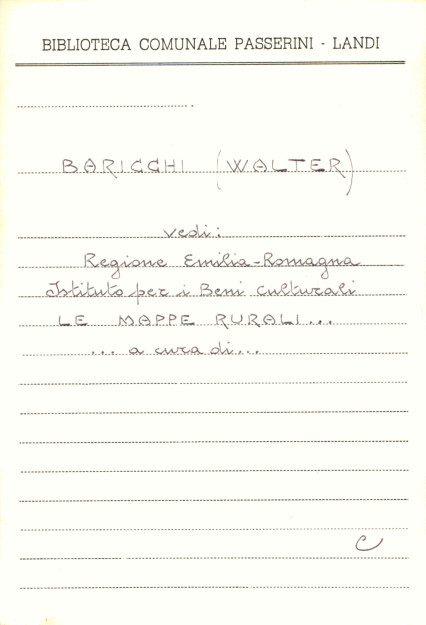 BIBLIOTECA COMUNALE PASSERINI - LANDI
BARICCHI (WALTER)
vedi:
Regione Emilia-Romagna
Istituto per i Beni Culturali
LE MAPPE RURALI...
... a cura di...
C